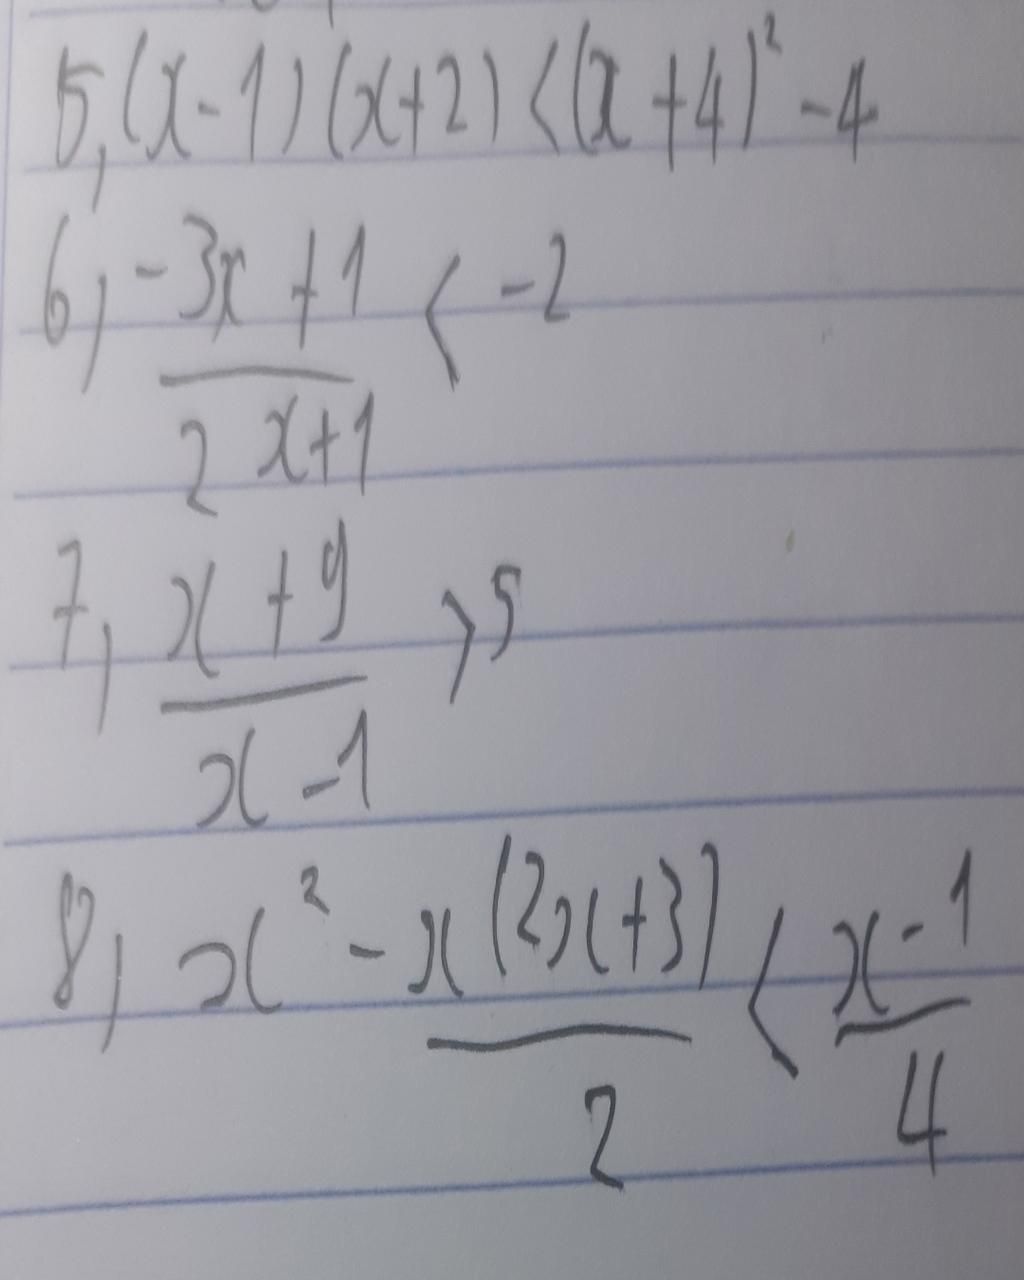 5, (x-1)(x+2) < (x+4)² -4
6, -3x+1 < -2
2x+1
7, x+9 > 5
x-1
8, x² - x(2x+3) < x-1
2 4